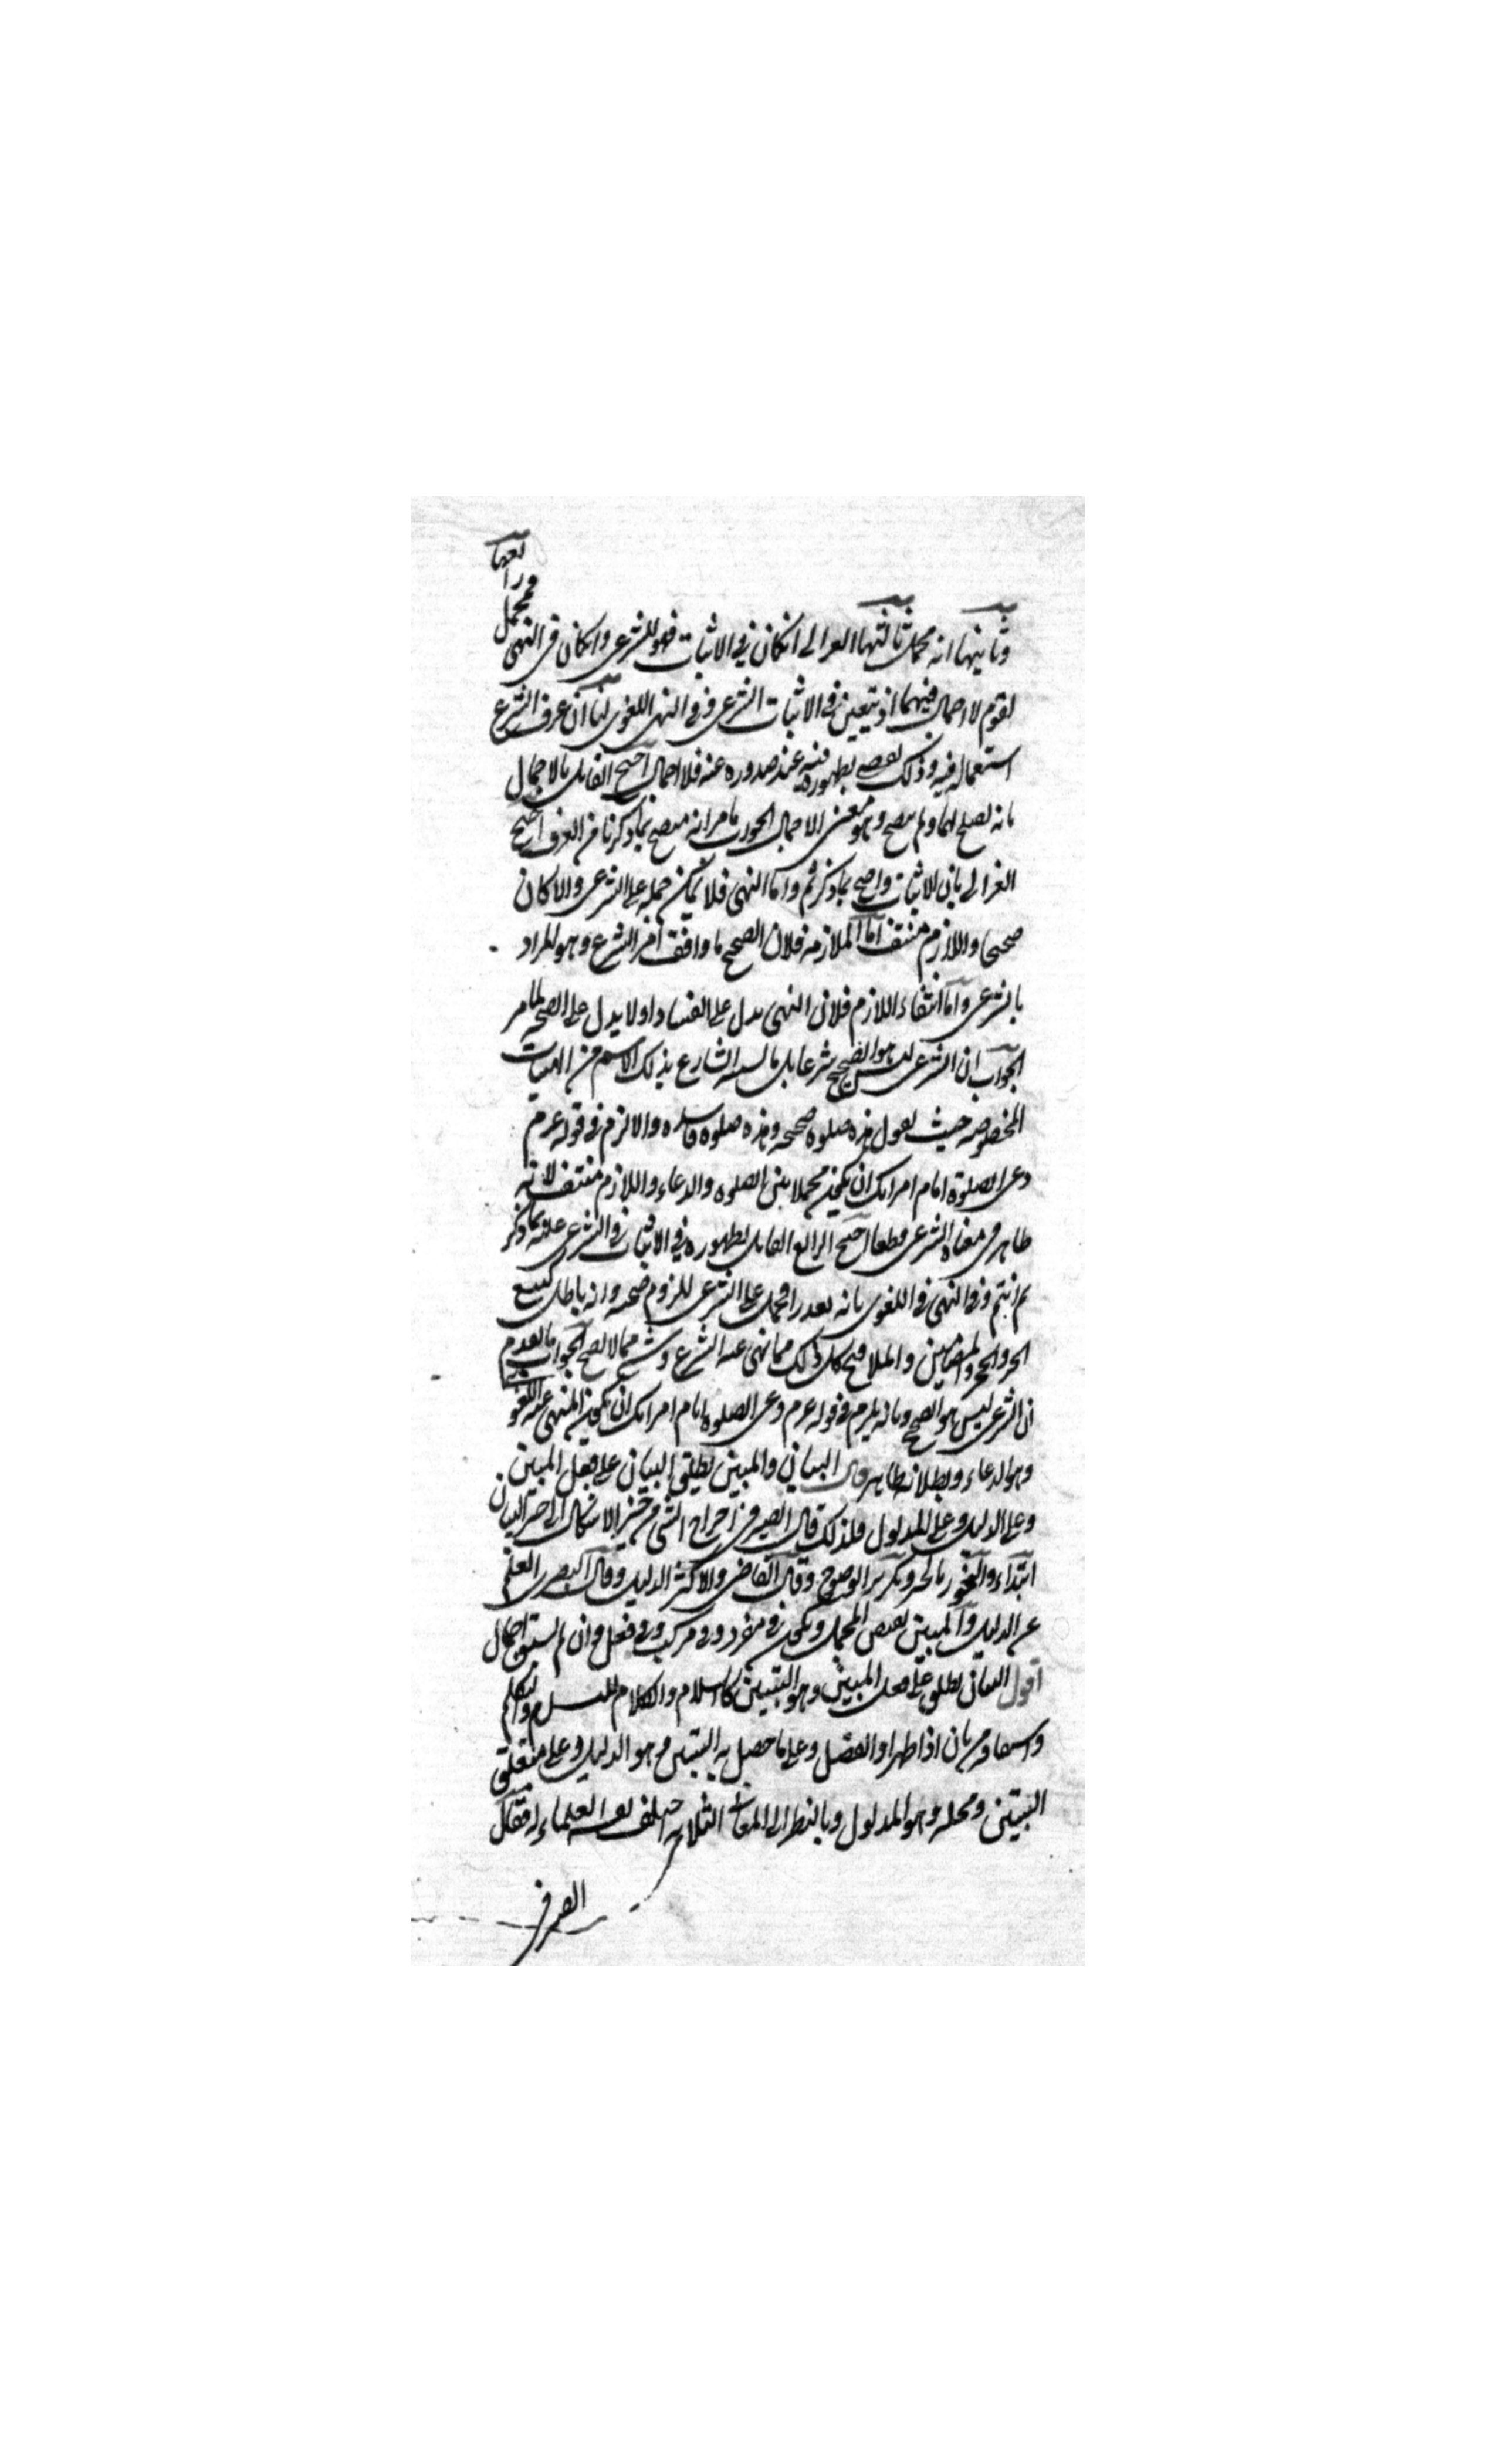 وثانيها انه مجمل ثالثها الغزالى انكان فى الاثبات فهو للشرعى وانكان فى النهى
فمجمل
ورا
بعها
لقوم لا اجمال فيهما اذ يتعين فى الاثبات الشرعى وفى النهى اللغوى لنا ان عرف الشرع
استعماله فيه وذلك يقضى بظهوره فيه عند صدوره عنه فلا اجمال احتج القايل بالاجمال
بانه يصلح لهما ولم يتضح وهو معنى الاجمال الجواب ما مر انه متضح بما ذكرنا من العرف احتج
الغزالى بان الاثبات واضح بما ذكرتم واما النهى فلا يمكن حمله على الشرعى والا كان
صحيحا واللازم منتف اما الملازمه فلان الصحيح ما وافق امر الشرع وهو المراد
بالشرعى واما انتفاء اللازم فلان النهى يدل على الفساد او لا يدل على الصحه لما مر
الجواب ان الشرعى ليس هو الصحيح شرعا بل ما يسميه الشارع بذلك الاسم من الهيات
المخصوصه حيث يقول هذه صلوه صحيحه وهذه صلوه فاسده والا لزم فى قوله عرم
دعى الصلوة ايام اقرائك ان يكون مجملا بين الصلوه والدعاء واللازم منتف لانه
ظاهر فى معناه الشرعى قطعا احتج الرابع القايل بظهوره فى الاثبات فى الشرعى بمثل ما ذكر
ثم انتم وفى النهى فى اللغوى بانه تعذر الحمل على الشرعى للزوم صحته وانه باطل كبيع
الحر والخمر والمضامين والملاقيح كل ذلك مما نهى عنه الشرع وشى مما لا يصح الجواب ما تقدم
ان الشرعى ليس هو الصحيح وبانه يلزم فى قوله عرم دعى الصلوه ايام اقرائك ان يكون المنهى عنه اللغو
وهو الدعاء وبطلانه ظاهر قال البيان والمبين يطلق البيان على فعل المبين
وعلى الدليل وعلى المدلول فلذلك قال الصيرفى اخراج الشى من حيز الاشكال الى حيز البيان
ابتداء والتجوز بالحيز وتكرير الوضوح وقال القاضى والاكثر الدليل وقال البصرى العلم
عن الدليل والمبين نقيض المجمل ويكون فى مفرد وفى مركب وفى فعل وان لم يسبق اجمال
اقول البيان يطلق على فعل المبين وهو التبيين كالسلام والكلام للتسليم والتكليم
واشتقاقه من بان اذا ظهر او انفصل وعلى ما حصل به التبيين وهو الدليل وعلى متعلق
التبيين ومحله وهو المدلول وبالنظر الى المعانى الثلاثه اختلف تفسير العلماء له فقال
الصيرفى